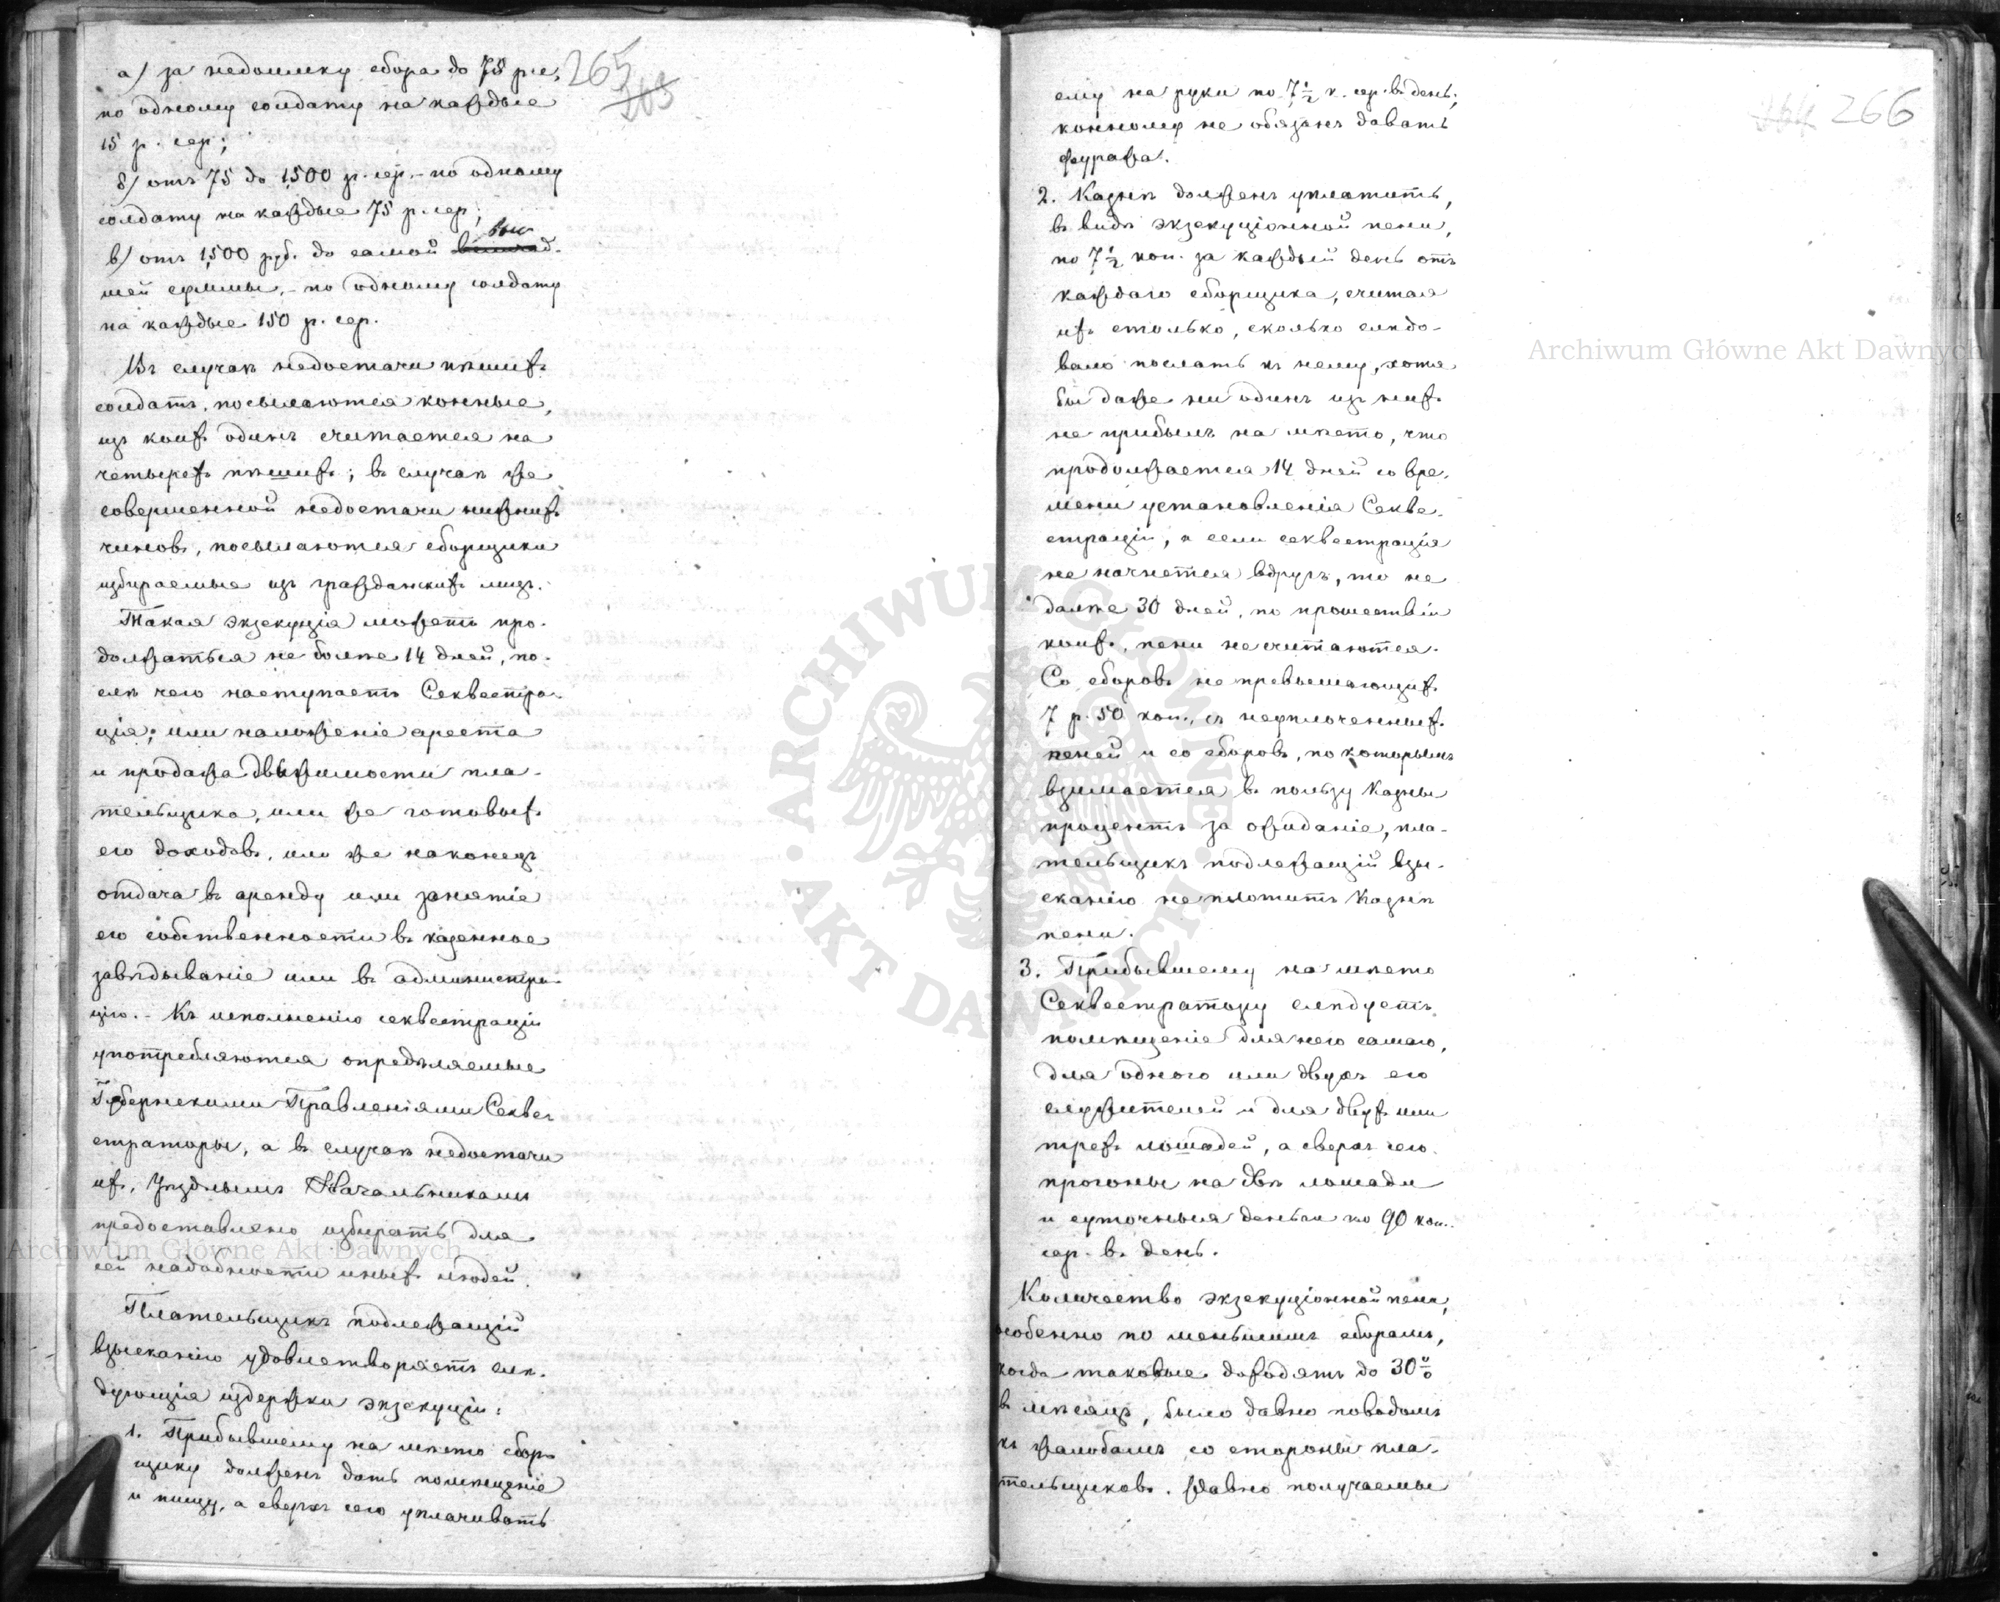 а) за недоимку сбора до 75 р. с.
по одному солдату на каждые
15 р. сер.;
б) отъ 75 до 1,500 р. сер. – по одному
солдату на каждые 75 р. сер.;
в) отъ 1,500 руб. до самой выс-
шей суммы, – по одному солдату
на каждые 150 р. сер.
Въ случаѣ недостачи пѣшихъ
солдатъ, посылаются конные,
изъ коихъ одинъ считается на
четырехъ пѣшихъ; въ случаѣ же
совершенной недостачи нижнихъ
чиновъ, посылаются сборщики
избираемые изъ гражданскихъ лицъ.
Такая экзекуція можетъ про-
должаться не болѣе 14 дней, по-
слѣ чего наступаетъ Секвестра-
ція; или наложеніе ареста
и продажа движимости пла-
тельщика, или же готовыхъ
его доходовъ, или же наконецъ
отдача въ аренду или занятіе
его собственности въ казенное
завѣдываніе или въ администра-
цію. – Къ исполненію секвестраціи
употребляются опредѣляемые
Губернскими Правленіями Секве-
страторы, а въ случаѣ недостачи
ихъ, Уѣзднымъ Начальникамъ
предоставлено избирать для
сей надобности иныхъ людей.
Плательщикъ подлежащій
взысканію удовлетворяетъ слѣ-
дующія издержки экзекуціи:
1. Прибывшему на мѣсто сбор-
щику долженъ дать помѣщеніе
и пищу, а сверхъ сего уплачивать
265
ему на руки по 7½ к. сер. въ день;
конному не обязанъ давать
фуража.
2. Казнѣ долженъ уплатить,
въ видѣ экзекуціонной пени,
по 7½ коп. за каждый день отъ
каждаго сборщика, считая
ихъ столько, сколько слѣдо-
вало послать къ нему, хотя
бы даже ни одинъ изъ нихъ
не прибылъ на мѣсто, что
продолжается 14 дней со вре-
мени установленія Секве-
страціи, а если секвестрація
не начнется вдругъ, то не
далѣе 30 дней, по прошествіи
коихъ, пени не считаются.
Со сборовъ не превышающихъ
7 р. 50 коп., съ неуплоченныхъ
пеней и со сборовъ, по которымъ
взимается въ пользу Казны
процентъ за ожиданіе, пла-
тельщикъ подлежащій взы-
сканію не платитъ Казнѣ
пени.
3. Прибывшему на мѣсто
Секвестратору слѣдуетъ
помѣщеніе для него самаго,
для одного или двухъ его
служителей и для двухъ или
трехъ лошадей, а сверхъ сего
прогоны на двѣ лошади
и суточныя деньги по 90 коп.
сер. въ день.
Количество экзекуціонной пени,
особенно по меньшимъ сборамъ,
когда таковые доходятъ до 30%
въ мѣсяцъ, было давно поводомъ
къ жалобамъ со стороны пла-
тельщиковъ. Давно получаемы
266
Archiwum Główne Akt Dawnych
Archiwum Główne Akt Dawnych
· ARCHIWUM GŁÓWNE · AKT DAWNYCH